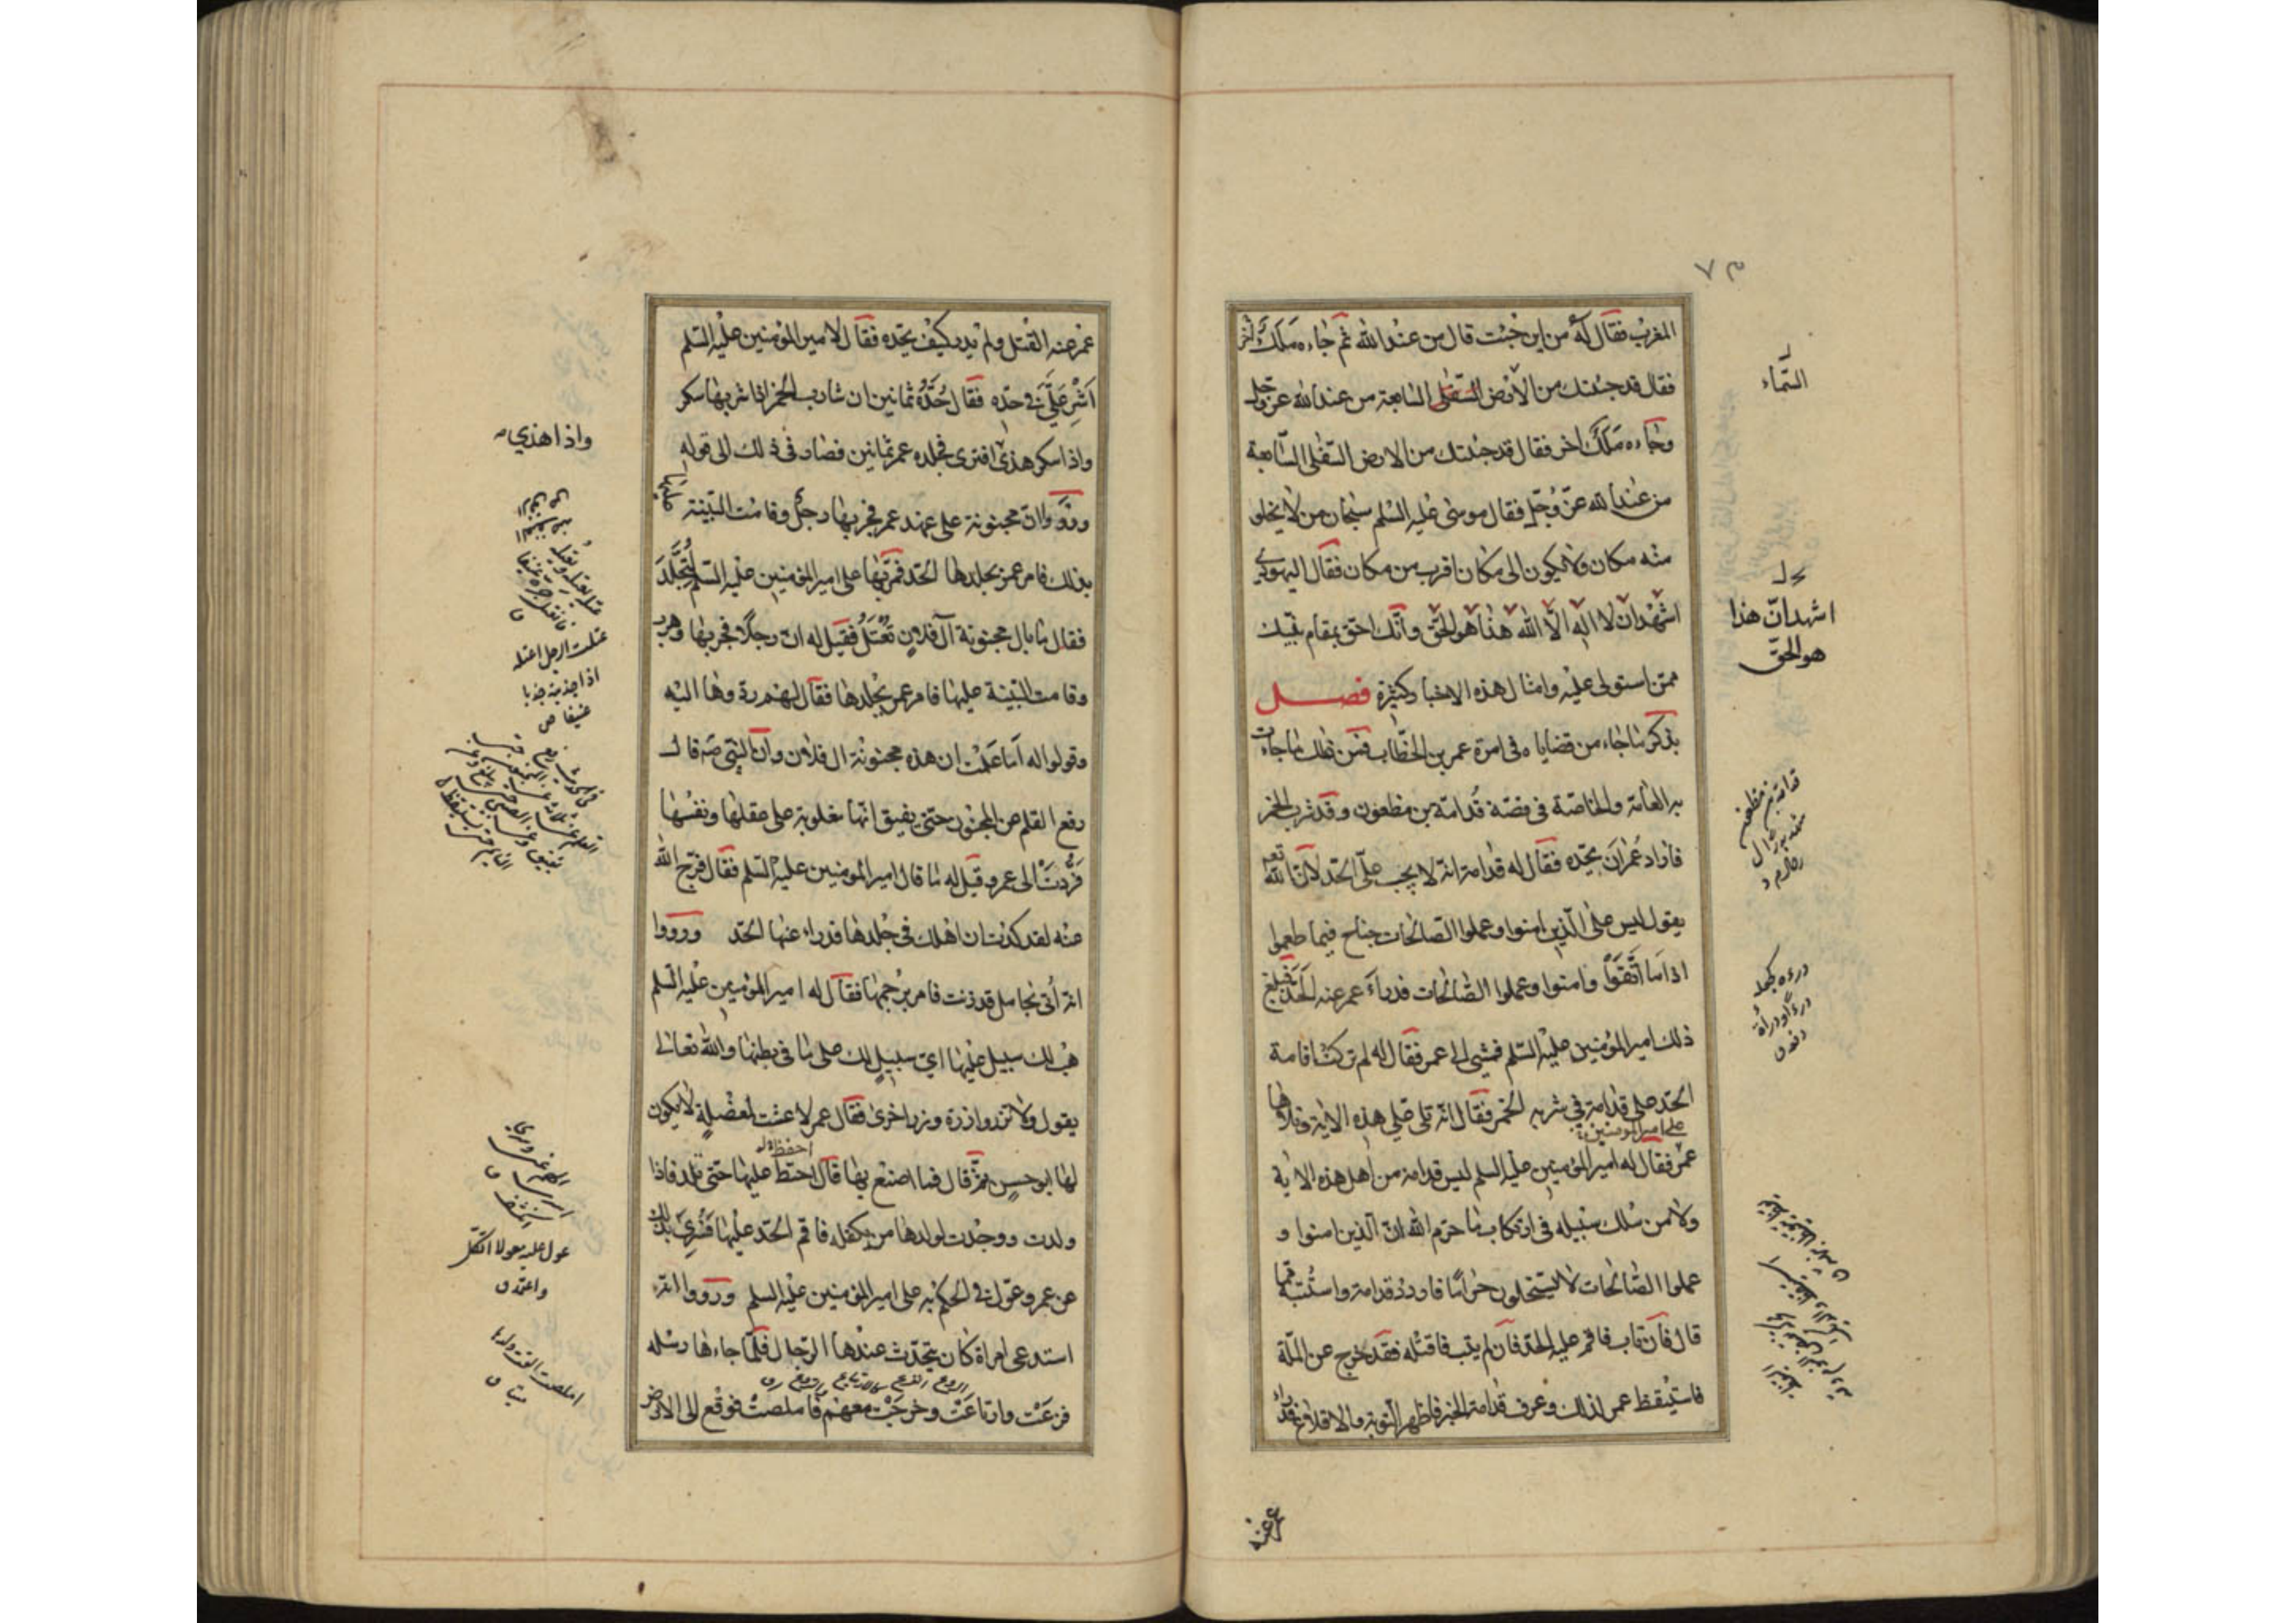 المغرب فقال له من اين جئت قال من عند الله ثم جاءه ملك اخر
فقال قد جئتك من الارض السفلى السابعة من عند الله عز وجل
وجاءه ملك اخر فقال قد جئتك من الارض السفلى السابعة
من عند الله عز وجل فقال موسى عليه السلم سبحان من لا يخلو
منه مكان ولا يكون الى مكان اقرب من مكان فقال اليهودي
اشهد ان لا اله الا الله هذا هو الحق وانك احق بمقام نبيك
ممن استولى عليه وامثال هذه الاخبار كثيرة فصل
بذكر ما جاء من قضاياه فى امرة عمر بن الخطاب فمن ذلك ما جاءت
به العامة والخاصة فى قصة قدامة بن مظعون وقد شرب الخمر
فاراد عمر ان يحده فقال له قدامة انه لا يجب علي الحد لان الله تعه
يقول ليس على الذين امنوا وعملوا الصالحات جناح فيما طعموا
اذا ما اتقوا وامنوا وعملوا الصالحات فدراء عمر عنه الحد فبلغ
ذلك امير المؤمنين عليه السلم فمشى الى عمر فقال له لم تركت اقامة
الحد على قدامة في شربه الخمر فقال انه تلى علي هذه الاية وتلاها
على امير المؤمنين
عمر فقال له امير المؤمنين عليه السلم ليس قدامة من اهل هذه الاية
ولا من سلك سبيله فى ارتكاب ما حرم الله ان الذين امنوا و
عملوا الصالحات لا يستحلون حراما فاردد قدامة واستتبه مما
قال فان تاب فاقم عليه الحد فان لم يتب فاقتله فقد خرج عن الملة
فاستيقظ عمر لذلك وعرف قدامة الخبر فاظهر التوبة والاقلاع فدراء
السماء
اشهد ان هذا
هو الحق
قدامة بن مظعون
درءه كجعله
درءا ودراة
دفعه ق
عمر عنه
عمر عنه القتل ولم يدر كيف يحده فقال لامير المؤمنين عليه السلم
اشر علي في حده فقال حده ثمانين ان شارب الخمر اذا شربها سكر
واذا سكر هذى افترى فجلده عمر ثمانين فصار فى ذلك الى قوله
ورووا ان مجنونة على عهد عمر فجر بها رجل وقامت البينة عليها
بذلك فامر عمر بجلدها الحد فمر بها على امير المؤمنين عليه السلم لتجلد
فقال ما بال مجنونة آل فلان تعتل فقيل له ان رجلا فجر بها وهرب
وقامت البينة عليها فامر عمر بجلدها فقال لهم ردوها اليه
وقولوا له اما علمت ان هذه مجنونة ال فلان وان النبي صه قال
رفع القلم عن المجنون حتى يفيق انها مغلوبة على عقلها ونفسها
فردت الى عمر وقيل له ما قال امير المؤمنين عليه السلم فقال فرج الله
عنه لقد كدت ان اهلك فى جلدها فدراء عنها الحد ورووا
انه أتى بحامل قد زنت فامر برجمها فقال له امير المؤمنين عليه السلم
هب لك سبيل عليها اي سبيل لك على ما فى بطنها والله تعالى
يقول ولا تزر وازرة وزر اخرى فقال عمر لا عشت لمعضلة لا يكون
احفظ
لها ابو حسن ثم قال فما اصنع بها قال احتط عليها حتى تلد فاذا
ولدت ووجدت لولدها من يكفله فاقم الحد عليها فسرى بذلك
عن عمر وعول في الحكم به على امير المؤمنين عليه السلم ورووا انه
استدعى امراة كان يتحدث عندها الرجال فلما جاءها رسله
فزعت وارتاعت وخرجت معهم فاملصت فوقع الى الارض
واذا هذي
عتلت الرجل اعتله
اذا جذبته جذبا
عنيفا ص
عول عليه معولا اتكل
واعتمد ق
املصت القت ولدها
ميتا ق